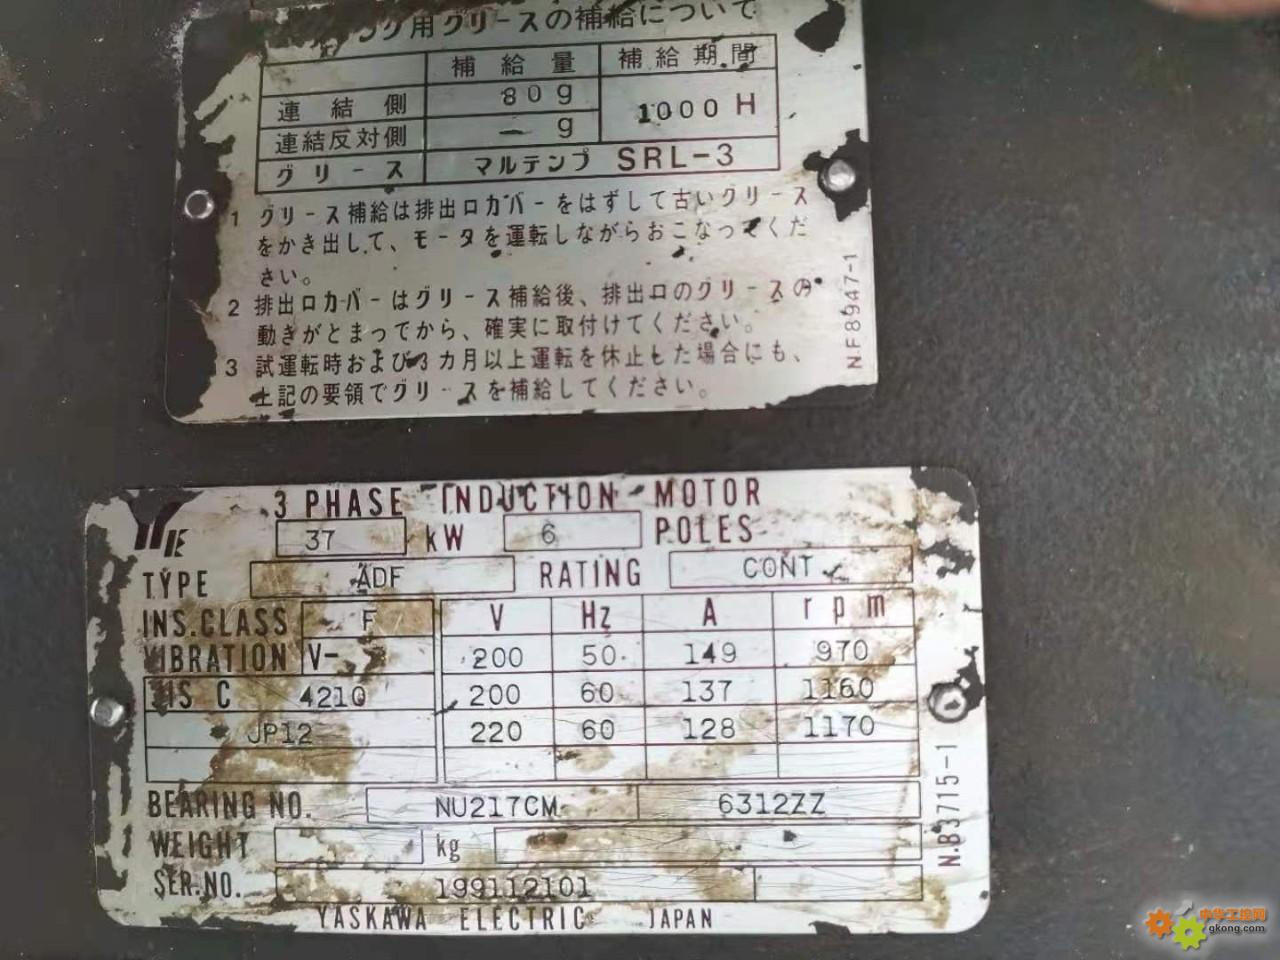 ング用グリースの補給について
補給量 補給期間
連結側 80g 1000H
連結反対側 — g
グリース マルテンプ SRL-3
1 グリース補給は排出口カバーをはずして古いグリース
をかき出して、モータを運転しながらおこなってくだ
さい。
2 排出口カバーはグリース補給後、排出口のグリースの
動きがとまってから、確実に取付けてください。
3 試運転時および3カ月以上運転を休止した場合にも、
上記の要領でグリースを補給してください。
NF8947-1
3 PHASE INDUCTION MOTOR
37 kW 6 POLES
TYPE ADF RATING CONT.
INS.CLASS F V Hz A rpm
VIBRATION V- 200 50 149 970
JIS C 4210 200 60 137 1160
JP12 220 60 128 1170
BEARING NO. NU217CM 6312ZZ
WEIGHT kg
SER.NO. 199112101
YASKAWA ELECTRIC JAPAN
N.B3715-1
中华工控网
gkong.com